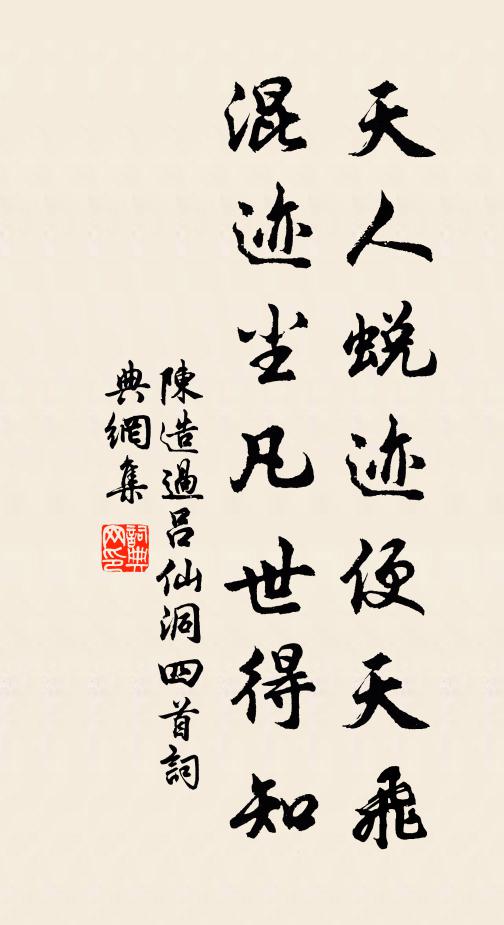 天人蜕迹便天飛
混迹尘凡世得知
陳造過呂仙洞四首詞
典網集
詞典
网印